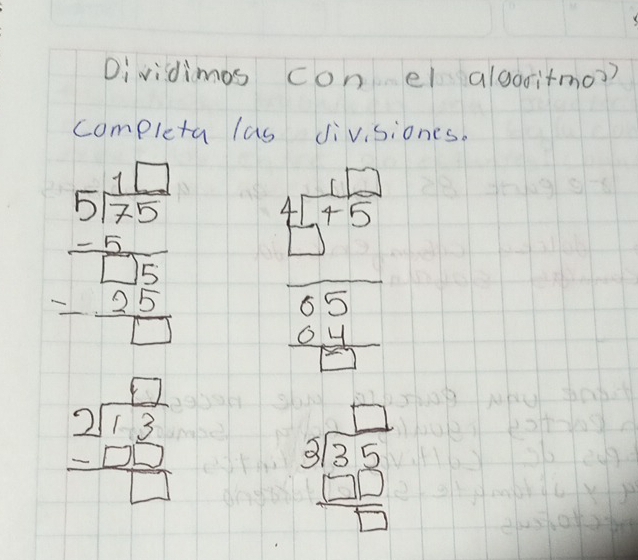 Dividimos con el algoritmo"
completa las divisiones.
1□
5 75
- 5
□5
- 25
□
1□
4 45
□
05
04
□
□
2 13
- □□
□
□
3 35
□□
□